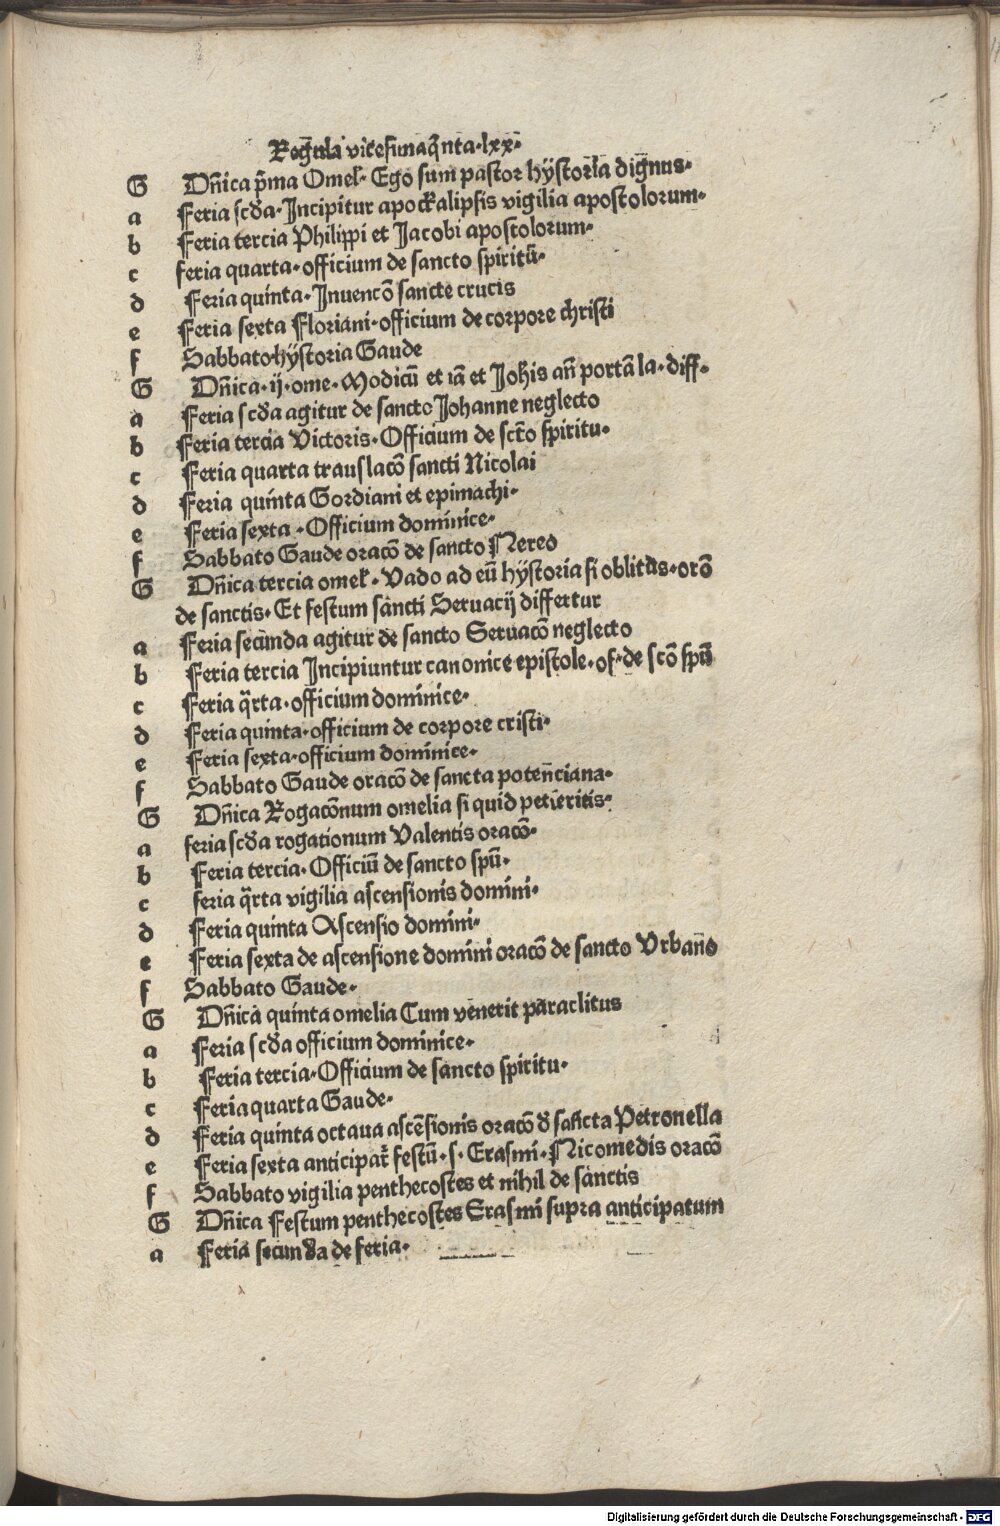 Regula vicesimaq̄nta·lxx·
G Dn̄ica p̄ma Omel̄· Ego sum pastor hÿstoria dignus·
a Feria scd̄a· Incipitur apockalipsis vigilia apostolorum·
b Feria tercia Philippi et Jacobi apostolorum·
c feria quarta· officium de sancto spiritū·
d Feria quinta· Inuencō sancte crucis
e Feria sexta Floriani· officium de corpore christi
f Sabbato hÿstoria Gaude
G Dn̄ica· ij· ome· Modicū et iā et Johis an̄ portā la· diff·
a Feria scd̄a agitur de sancto Johanne neglecto
b Feria tercia Victoris· Officium de sct̄o sp̄iritu·
c Feria quarta translacō sancti Nicolai
d Feria quinta Gordiani et epimachi·
e Feria sexta · Officium dominice·
f Sabbato Gaude oracō de sancto Nereo
G Dn̄ica tercia omel̄· Vado ad eū hÿstoria si oblitus· orō
de sanctis· Et festum sancti Seruacij differtur
a Feria secunda agitur de sancto Seruacō neglecto
b Feria tercia Incipiuntur canonice epistole· of· de scō spū
c Feria q̄rta· officium dominice·
d Feria quinta· officium de corpore cristi·
e Feria sexta· officium dominice·
f Sabbato Gaude oracō de sancta potēnciana·
G Dn̄ica Rogacōnum omelia si quid petieritis·
a feria scd̄a rogationum Valentis oracō·
b Feria tercia· Officiū de sancto spū·
c feria q̄rta vigilia ascensionis domini·
d Feria quinta Ascensio domini·
e Feria sexta de ascensione domini oracō de sancto Vrbano
f Sabbato Gaude·
G Dn̄ica quinta omelia Cum venerit paraclitus
a Feria scd̄a officium dominice·
b Feria tercia· Officium de sancto spiritu·
c Feria quarta Gaude·
d Feria quinta octaua ascēsionis oracō d̄ sancta Petronella
e Feria sexta anticipat̄ festū· s· Erasmi· Nicomedis oracō
f Sabbato vigilia penthecostes et nihil de sanctis
G Dn̄ica Festum penthecostes Erasmi supra anticipatum
a Feria secunda de feria·
Digitalisierung gefördert durch die Deutsche Forschungsgemeinschaft - DFG